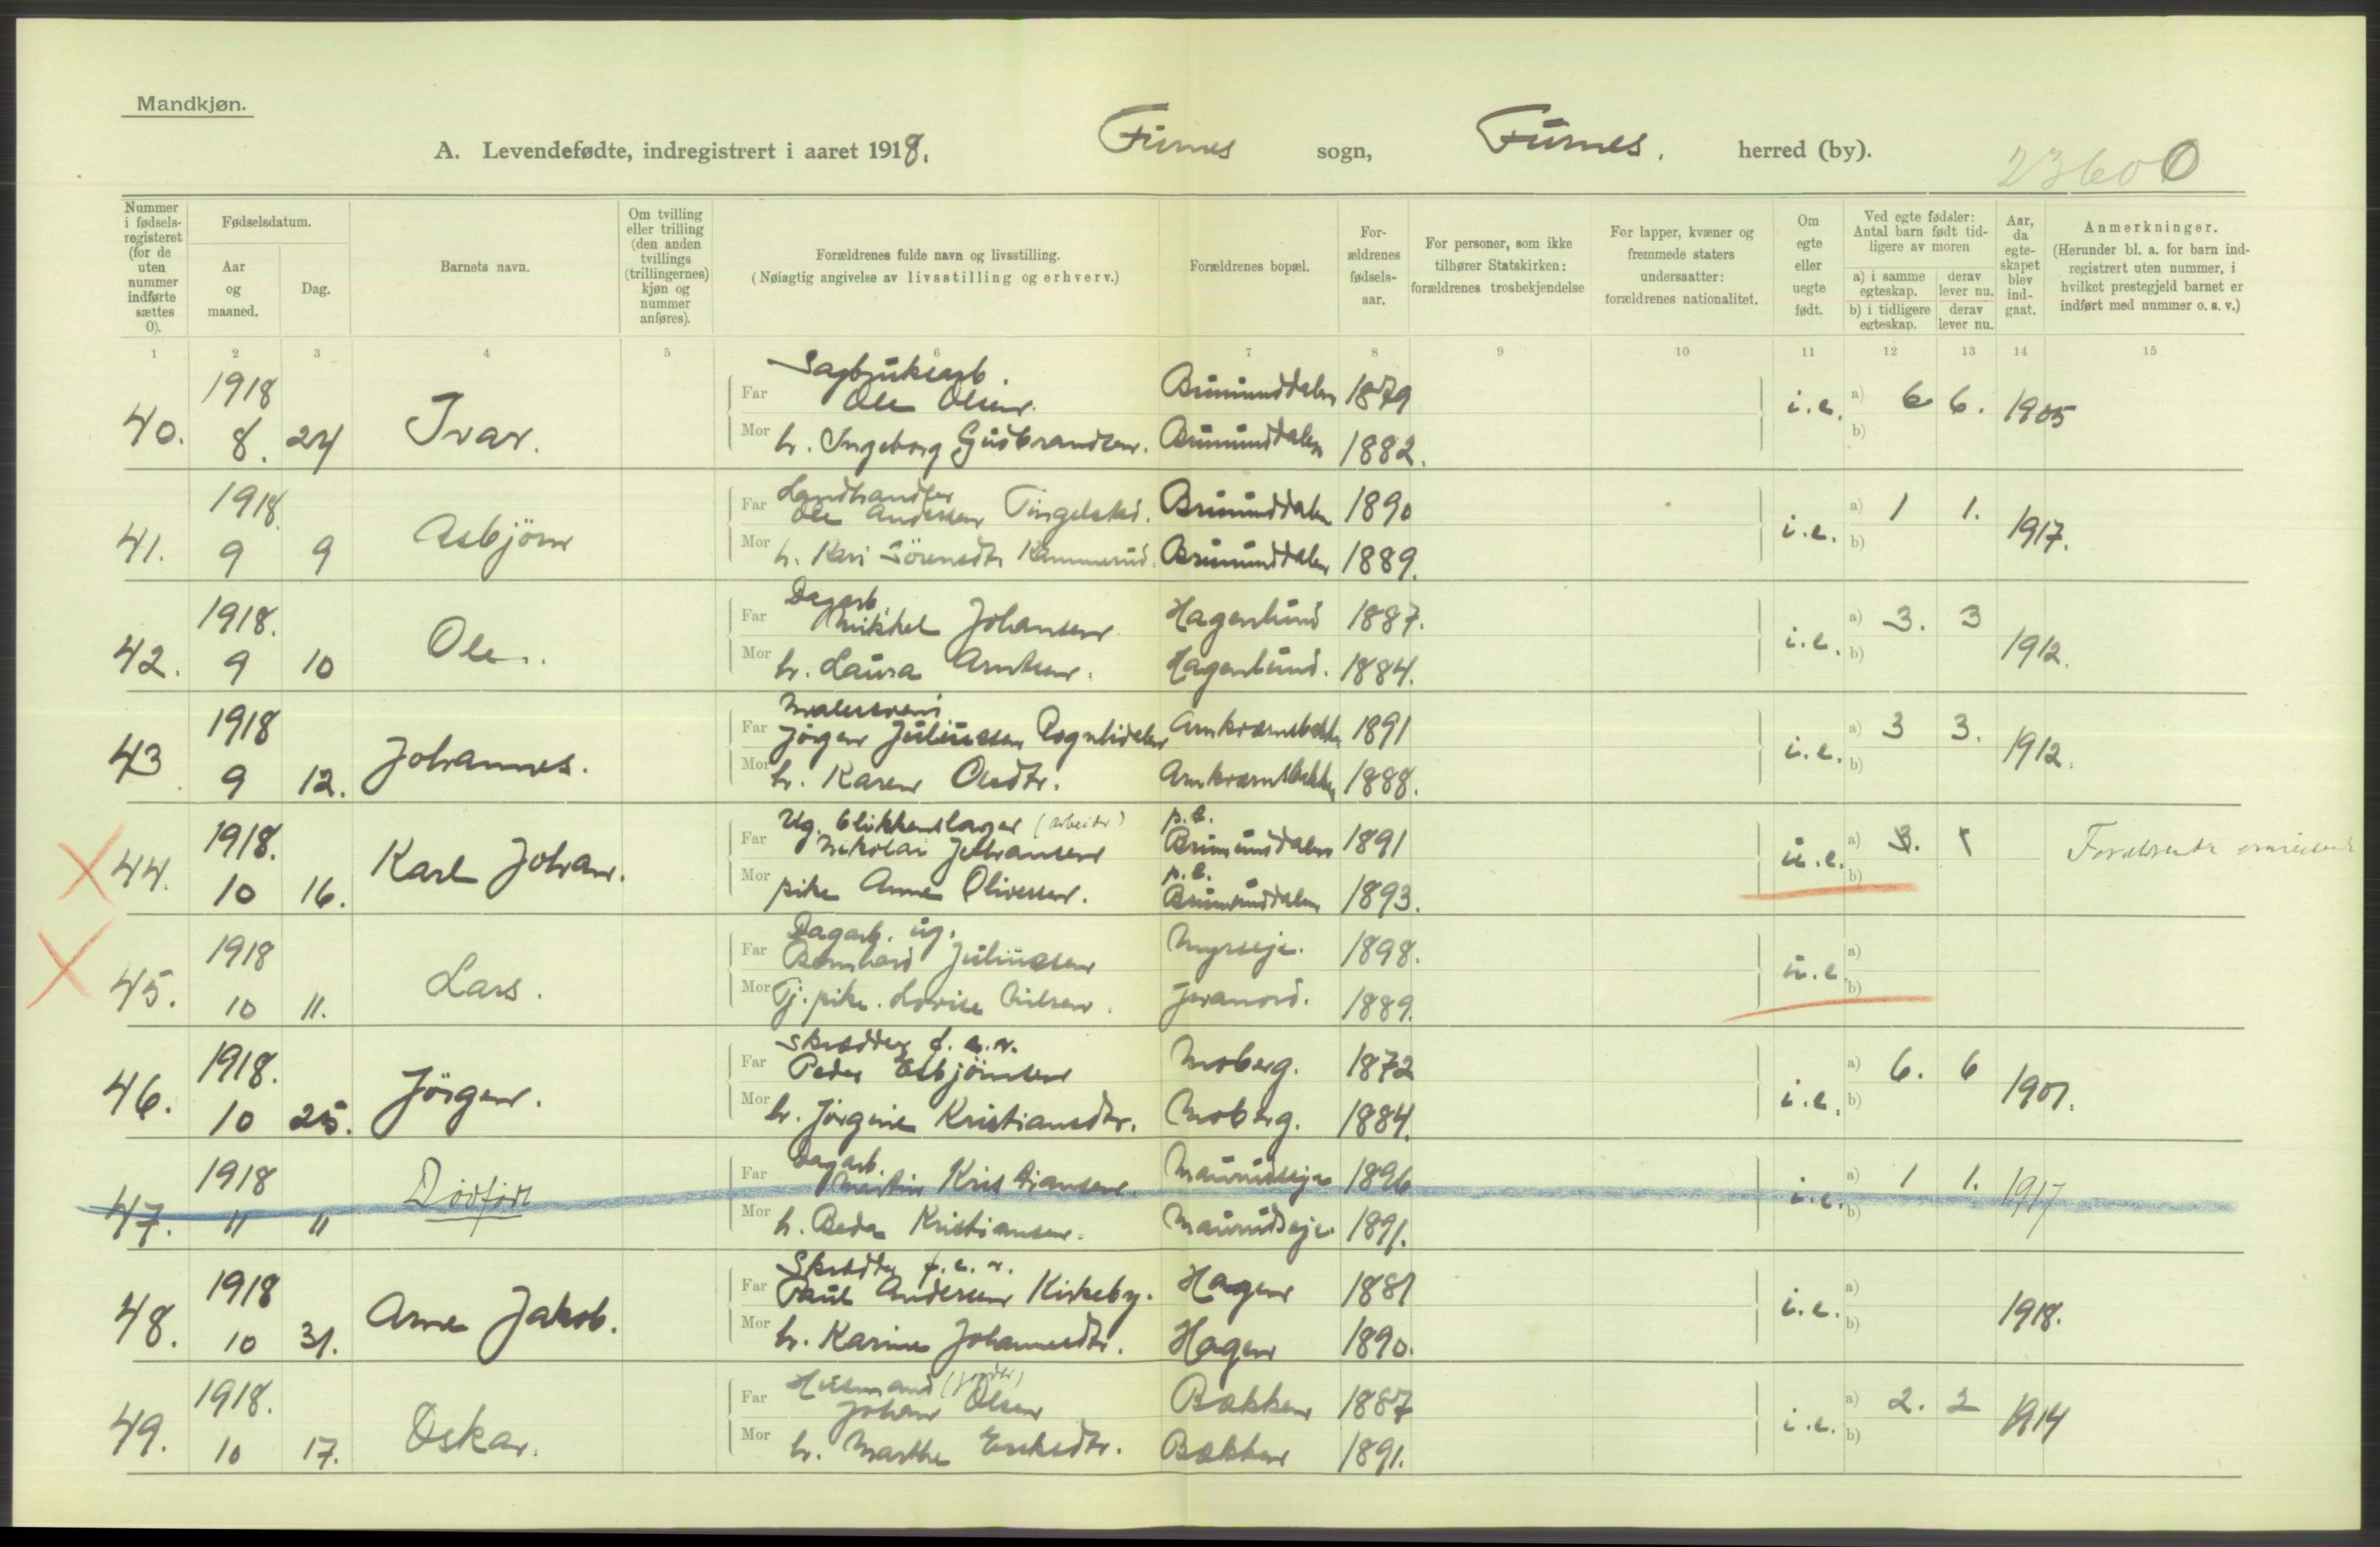 Mandkjøn.
A. Levendefødte, indregistrert i aaret 1918. Furnes sogn, Furnes. herred (by). 23600
Nummer i fødselsregisteret (for de uten nummer indførte sættes 0).
Fødselsdatum.
Aar og maaned.
Dag.
Barnets navn.
Om tvilling eller trilling (den anden tvillings (trillingernes) kjøn og nummer anføres).
Forældrenes fulde navn og livsstilling.
(Nøiagtig angivelse av livsstilling og erhverv.)
Forældrenes bopæl.
Forældrenes fødselsaar.
For personer, som ikke tilhører Statskirken: forældrenes trosbekjendelse
For lapper, kvæner og fremmede staters undersaatter: forældrenes nationalitet.
Om egte eller uegte født.
Ved egte fødsler: Antal barn født tidligere av moren
a) i samme egteskap. derav lever nu.
b) i tidligere egteskap. derav lever nu.
Aar, da egteskapet blev indgaat.
Anmerkninger.
(Herunder bl. a. for barn indregistrert uten nummer, i hvilket prestegjeld barnet er indført med nummer o. s. v.)
1 2 3 4 5 6 7 8 9 10 11 12 13 14 15
Sagbruksarb.
1918 Far Ole Olsen. Brumunddalen 1879 a) 6 6. 1905
40. 8. 24 Ivar. Mor h. Ingeborg Gudbrandsen. Brumunddalen 1882. i.e. b)
Landhandler
1918. Far Ole Andersen Tingelstad. Brumunddalen 1890 a) 1 1. 1917.
41. 9 9 Asbjörn Mor h. Kari Sörensdtr Kammerud. Brumunddalen 1889. i.e. b)
Dagarb.
1918. Far Mikkel Johansen Hagenlund 1887. a) 3. 3 1912.
42. 9 10 Ole. Mor h. Laura Arntsen. Hagenlund. 1884. i.e. b)
Malersvein
1918 Far Jörgen Juliussen Rognlidalen Arnkværnsbakken 1891 a) 3 3. 1912.
43 9 12. Johannes. Mor h. Karen Olsdtr. Arnkværnsbakken 1888. i.e. b)
Ug. blikkenslager (arbeider) p.t.
1918. Far Nikolai Johansen Brumunddalen 1891 a) 3. 1
44. 10 16. Karl Johan. Mor pike Anne Oliversen. p.t. Brumunddalen 1893. u.e. b)
Dagarb. ug.
1918 Far Bernhard Juliussen Myrseje. 1898. a)
45. 10 11. Lars. Mor Tj. pike. Lovise Nilsen. Jevanord. 1889. u.e. b)
Skrædder f. e. r.
1918. Far Peder Esbjörnsen Moberg. 1872 a) 6. 6 1901.
46. 10 25. Jörgen. Mor h. Jörgine Kristiansdtr. Moberg. 1884. i.e. b)
Dagarb.
1918 Far Martin Kristiansen. Maurudseje 1896 a) 1 1. 1917
47. " " Dödfödt Mor h. Beda Kristiansen. Maurudseje 1891. i.e. b)
Skrædder f. e. r.
1918 Far Paul Andersen Kirkeby. Hagen 1881 a) 1918.
48. 10 31. Arne Jakob. Mor h. Karine Johannesdtr. Hagen 1890. i.e. b)
Husmand
1918. Far Johan Olsen Bakken 1887 a) 2. 2 1914
49. 10 17. Oskar. Mor h. Marthe Eriksdtr. Bakken 1891. i.e. b)